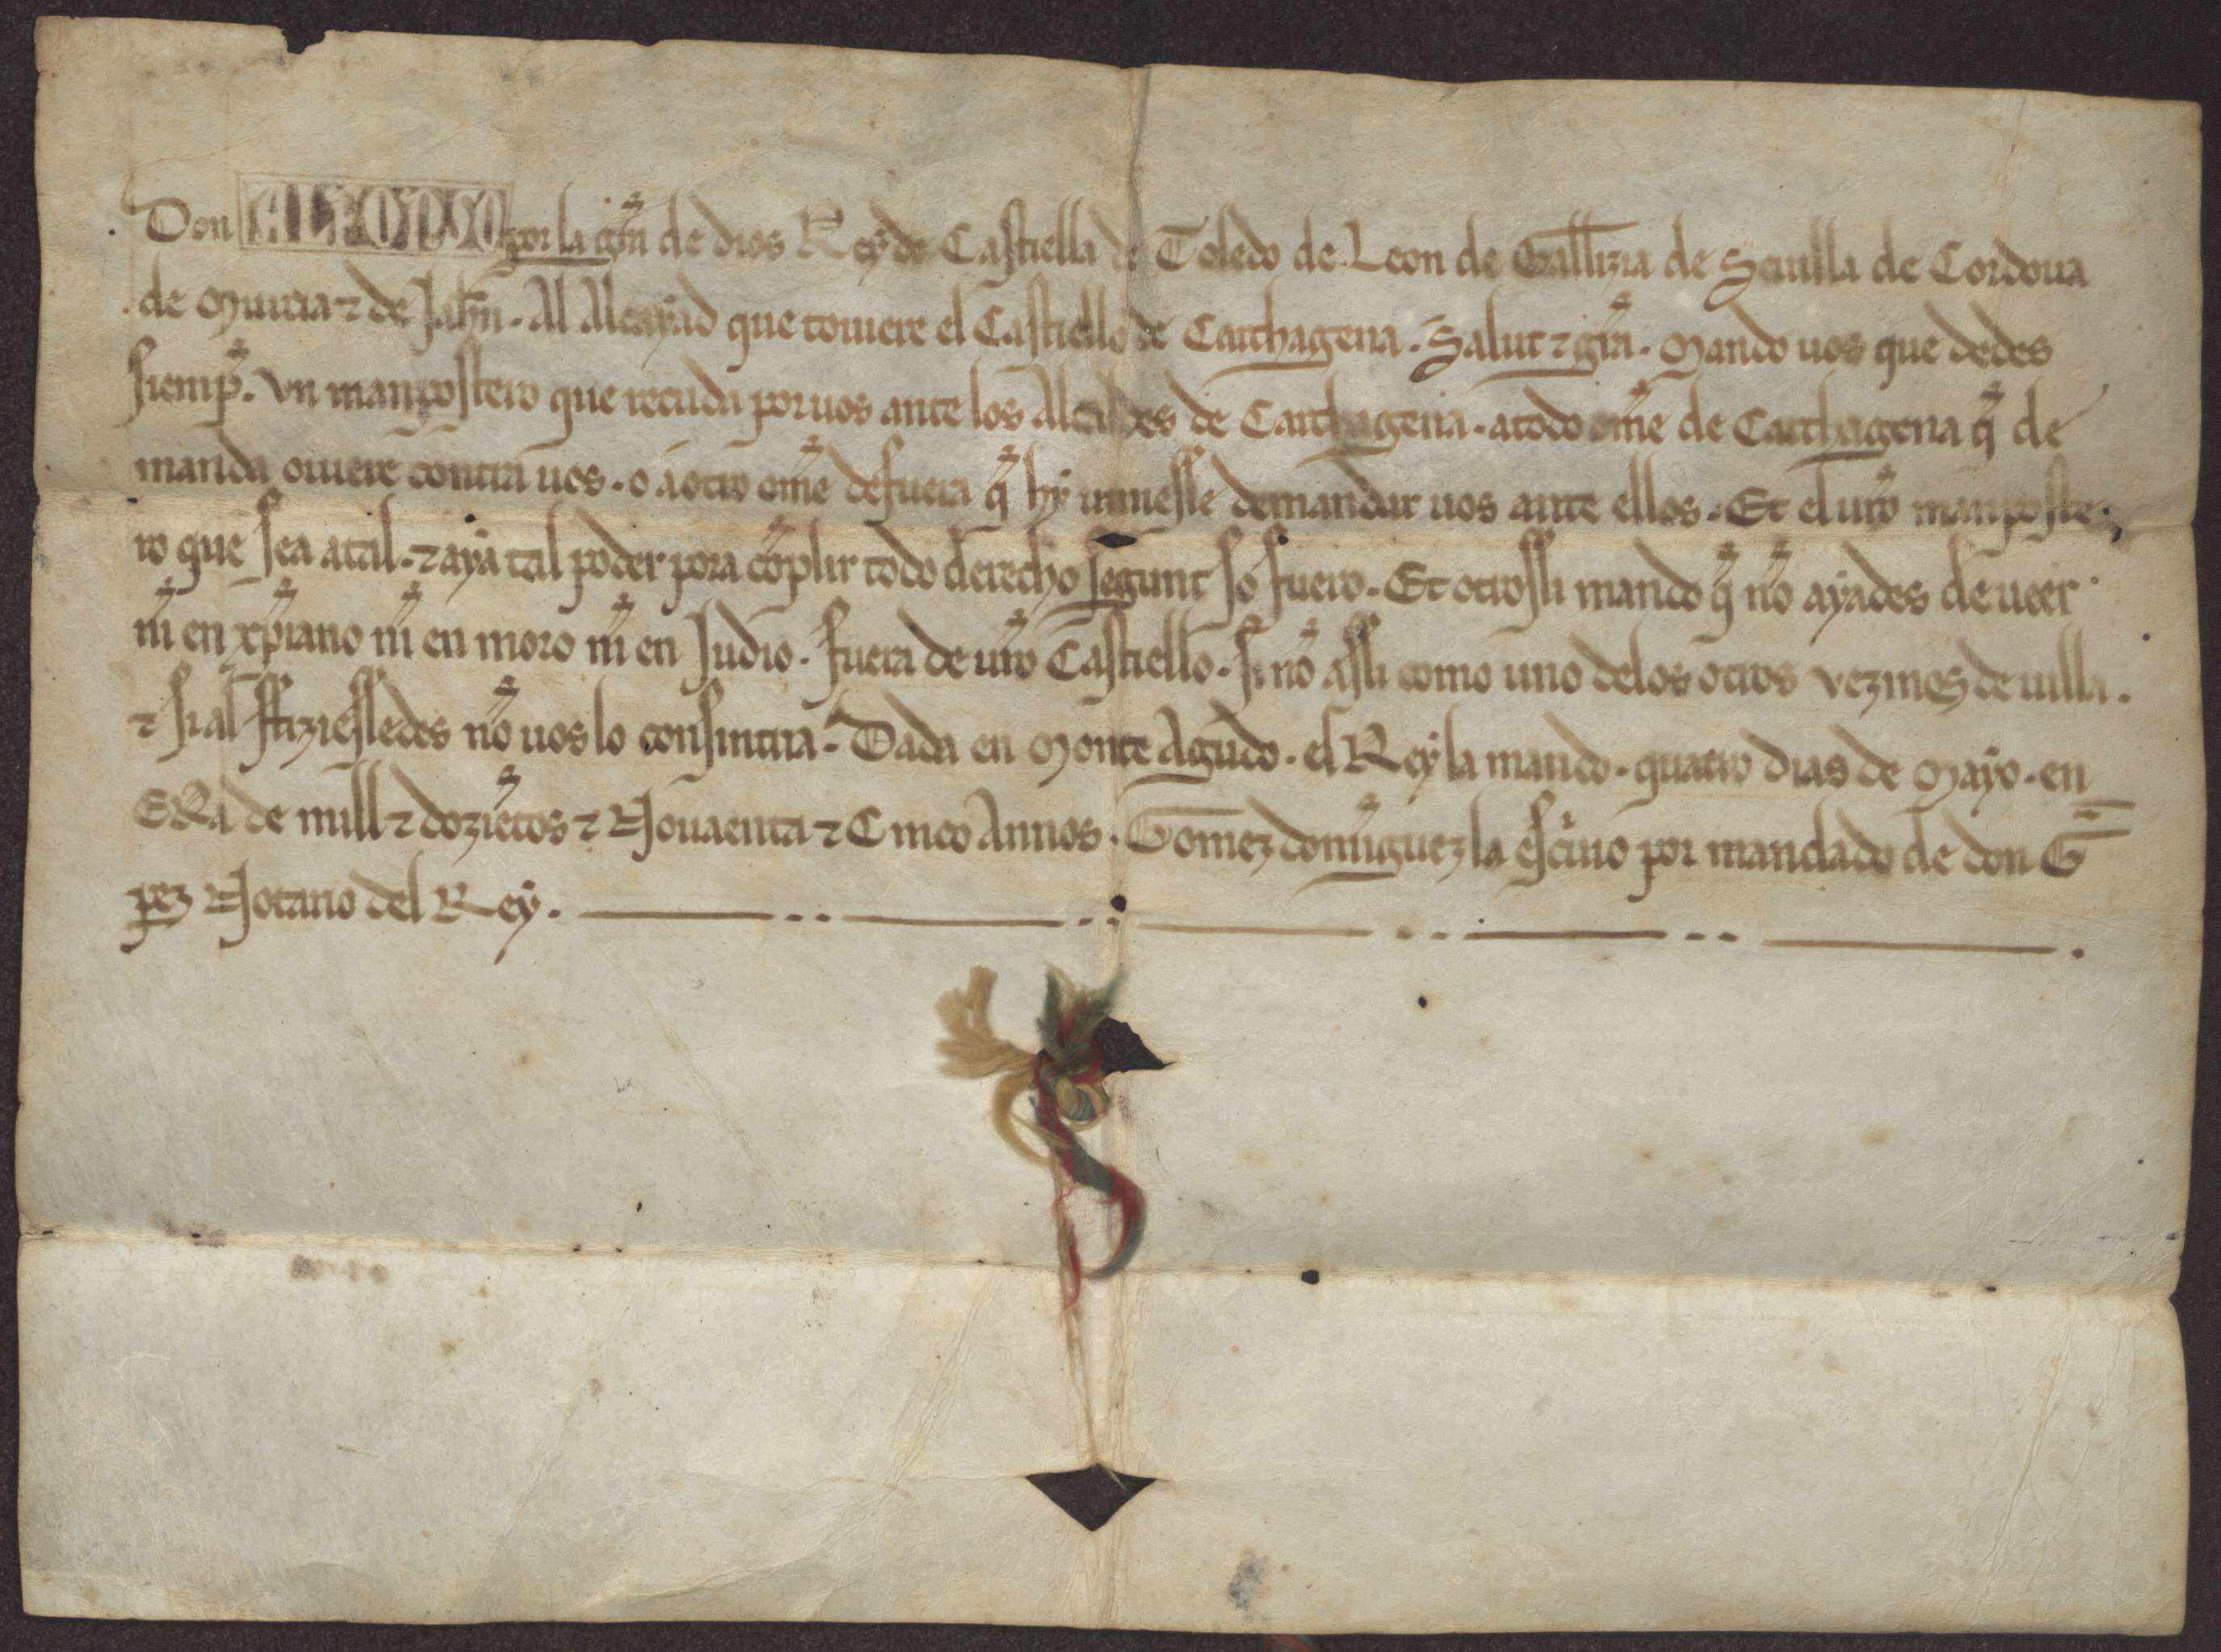 Don ALFONSO por la gra de dios Rey de Castiella de Toledo de Leon de Gallizia de Seuilla de Cordoua
de Murcia ⁊ de Jahn. Al Alcayad que touiere el Castiello de Carthagena. Salut ⁊ gra. Mando uos que dedes
siemp̃. vn manpostero que recuda por uos ante los Alcaldes de Carthagena. a todo ome de Carthagena q̃ de
manda ouiere contra uos. o a otro ome de fuera q̃ hy uiniesse demandar uos ante ellos. Et el uro manposte
ro que sea atal. ⁊ aya tal poder pora cõplir todo derecho segunt so fuero. Et otrossi mando q̃ nõ ayades de ueer
nĩ en xp̃iano nĩ en moro nĩ en Judio. fuera de uro Castiello. si nõ assi como uno delos otros vezinos de uilla.
⁊ si al ffiziessedes nõ uos lo consintria. Dada en Monte Agudo. el Rey la mando. quatro dias de Mayo. en
ERa de mill ⁊ doziẽtos ⁊ Nouaenta ⁊ Cinco Annos. Gomez domĩguez la escriuo por mandado de don G̃
pez Notario del Rey.